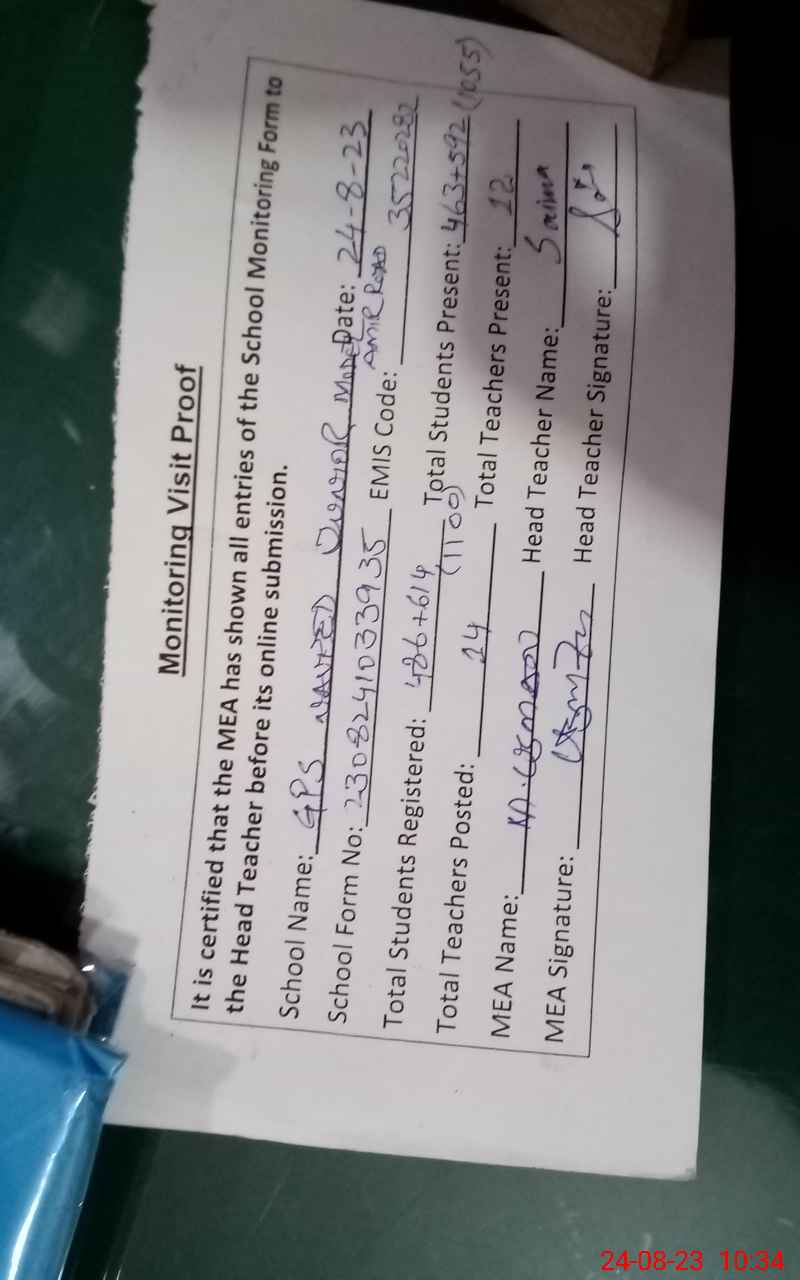 Monitoring Visit Proof
It is certified that the MEA has shown all entries of the School Monitoring Form to
the Head Teacher before its online submission.
School Name: GPS JUNIOR MODEL Date: 24-8-23
AMIR ROAD
School Form No: 230824103393​5 EMIS Code: 35220282
Total Students Registered: 486+614 Total Students Present: 463+592 (1055)
(1100)
Total Teachers Posted: 14 Total Teachers Present: 12
MEA Name: Head Teacher Name: Saima
MEA Signature: Head Teacher Signature:
24-08-23 10:34